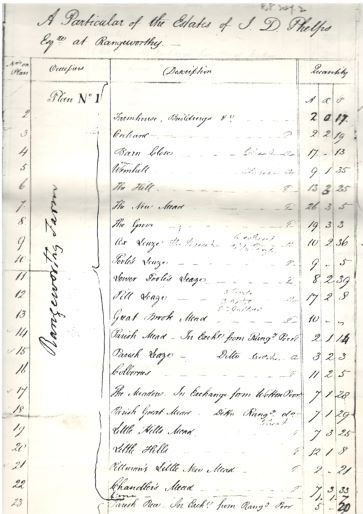 A Particular of the Estates of J D Phelps
Esqre at Rangeworthy
No on Plan Occupiers Description Quantity
Plan No 1 A R P
2 Farmhouse, Buildings &c 2 0 17
3 Orchard 2 2 19
4 Barn Close 17 - 13
5 9 1 35
6 The Hill 13 3 25
7 The New Mead 26 3 5
8 The Green 19 3 3
9 Leaze 10 2 36
10 Poole's Leaze 9 - 5
11 Lower Poole's Leaze 8 2 39
12 Leaze 17 2 8
13 Great Brook Mead 10 - -
14 Parish Mead - In Exche from Range Poor 2 1 14
15 Parish Leaze - Ditto 3 2 3
16 11 2 5
17 The Meadow. In Exchange from Wotton Poor 7 1 28
18 Parish Great Mead - Ditto Range do 7 1 29
19 Little Hills Mead 7 3 25
20 Little Hills 12 1 8
21 Little New Mead 2 - 21
22 Chandler's Mead 7 3 33
23 Parish Piece. In Exche from Range Poor 5 - 20
Rangeworthy Farm